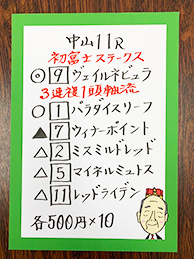 中山11R
初富士ステークス
◎9ヴェイルネビュラ
3連複1頭軸流
○1パラダイスリーフ
▲7ウィナーポイント
△2ミスミルドレッド
△5マイネルミュトス
△11レッドライデン
各500円×10